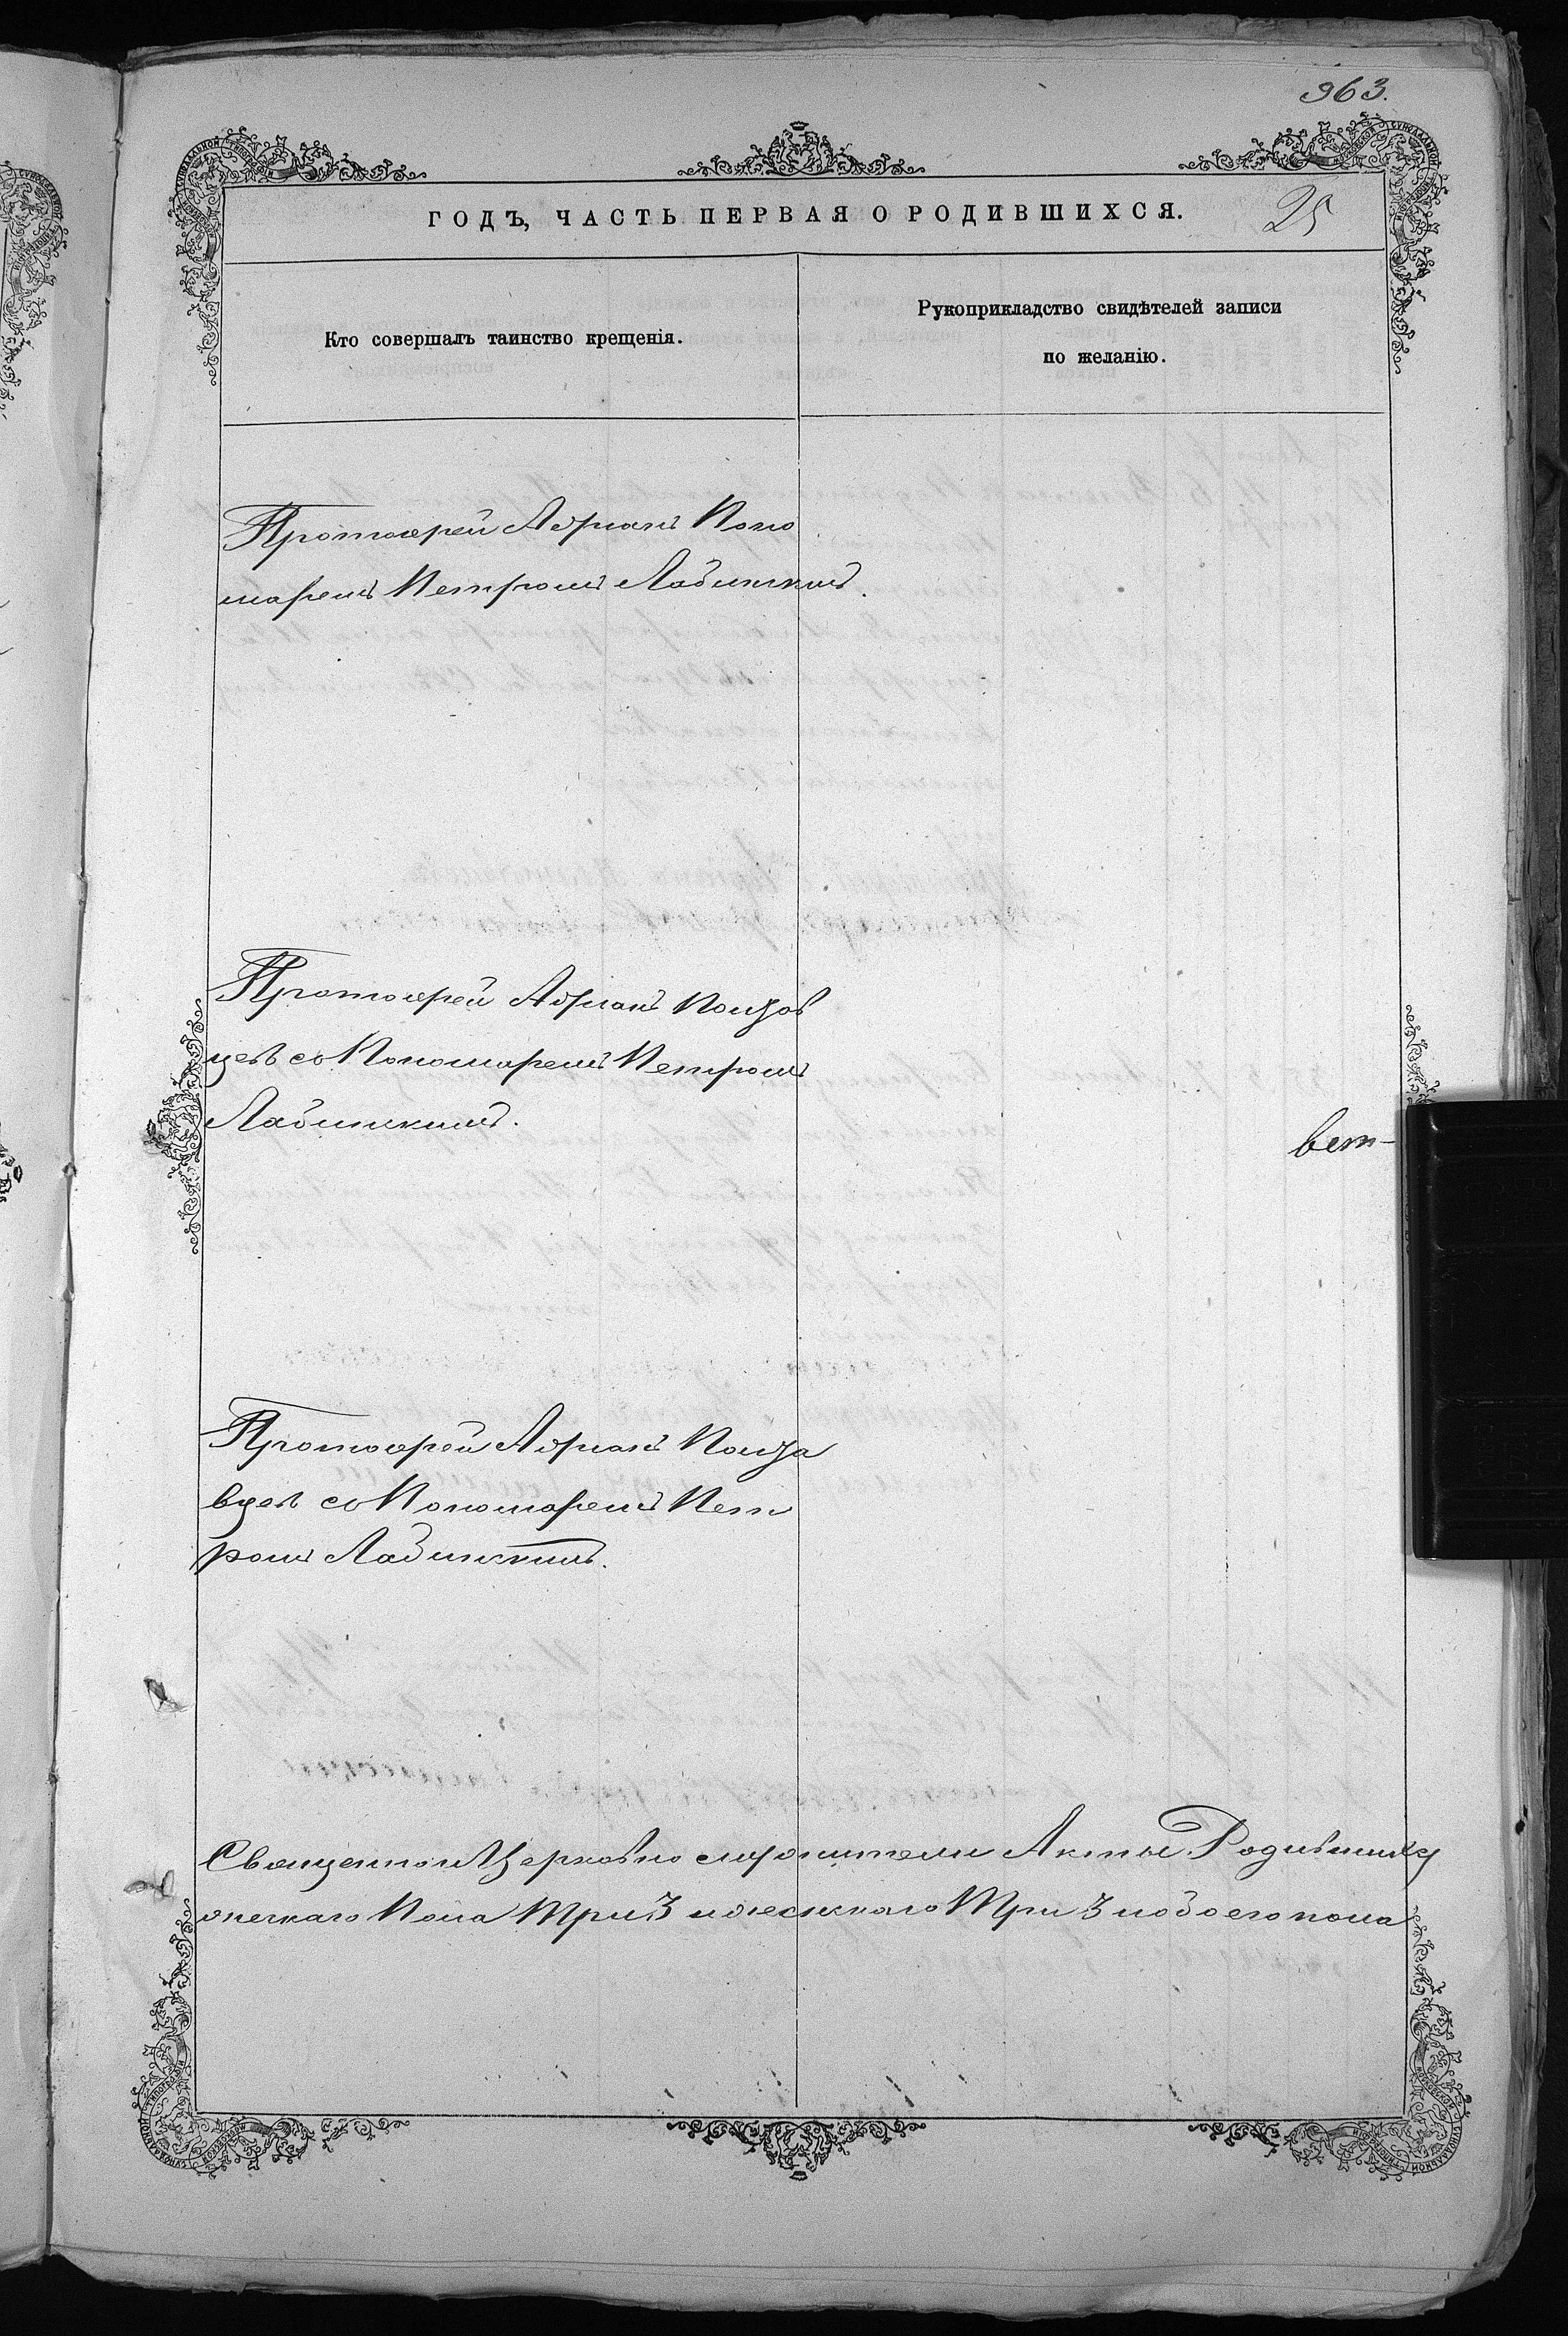 963.
ГОДЪ, ЧАСТЬ ПЕРВАЯ О РОДИВШИХСЯ. 25
Кто совершалъ таинство крещенія.
Рукоприкладство свидѣтелей записи
по желанію.
Протоіерей Адріанъ Поно
маремъ Петромъ Лабинскимъ.
Протоіерей Адріанъ
цевъ со Пономаремъ Петромъ
Лабинскимъ.
вет-
Протоіерей Адріанъ
вцевъ со Пономаремъ Пет
ромъ Лабинскимъ.
Священно и Церковно служители Акты Родившихся
Пола Три 3 и женскаго Три 3 и обоего пола